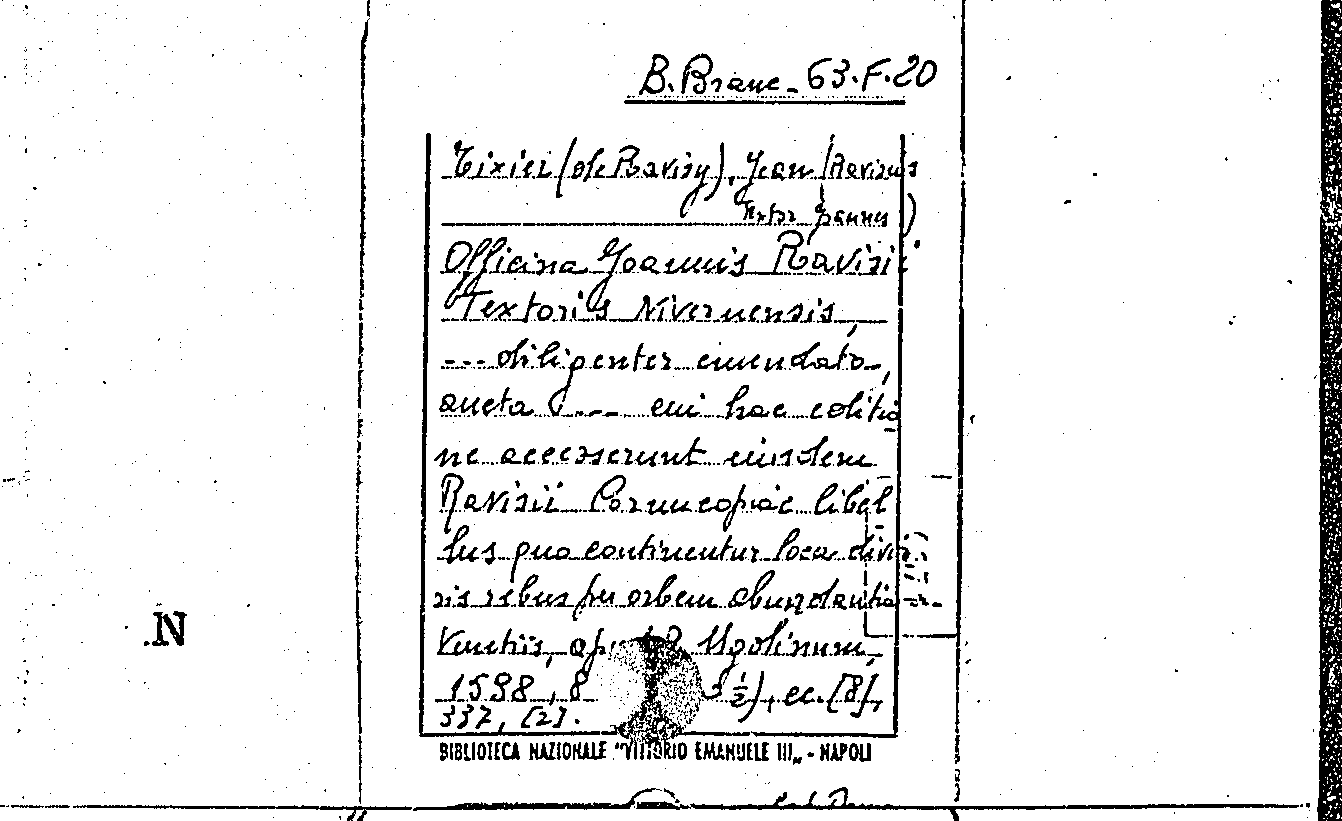 B. Branc. 63.F.20
Tixier (de Ravisy), Jean (Ravisius
Textor Joannes)
Officina Joannis Ravisii
Textoris Nivernensis,
--- diligenter emendata,
aucta --- cui hac editio
ne accesserunt eiusdem
Ravisii Cornucopiae libel
lus quo continentur loca diver
sis rebus per orbem abundantia
Venetiis, apud Ugolinum,
1598, 8 ½), cc. [8],
337, [2].
BIBLIOTECA NAZIONALE "VITTORIO EMANUELE III„ - NAPOLI
.N